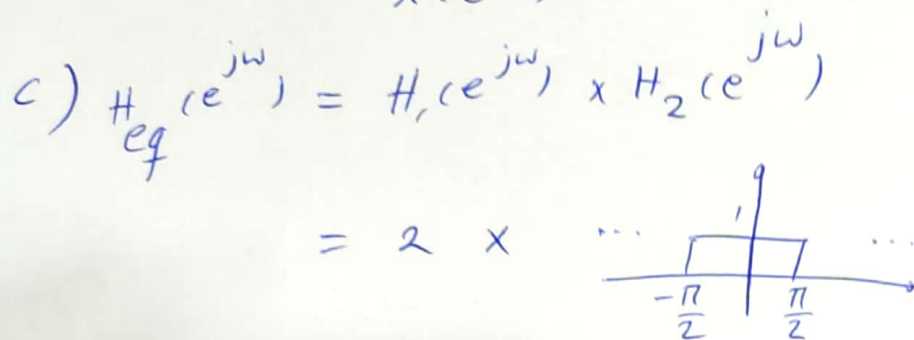 c) H_eq (e^{jω}) = H_1 (e^{jω}) × H_2 (e^{jω})
= 2 × ... 1 ...
-π/2 π/2